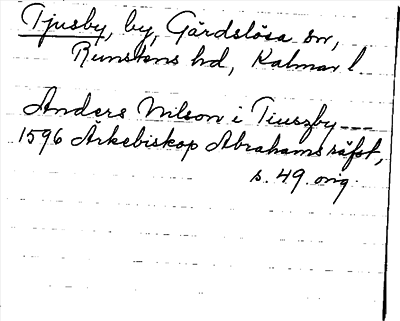 Tjusby, by, Gårdslösa sn,
Runstens hd, Kalmar l.
Anders Nilson i Tiuszby ---
1596 Ärkebiskop Abrahams räfst,
s. 49. orig.